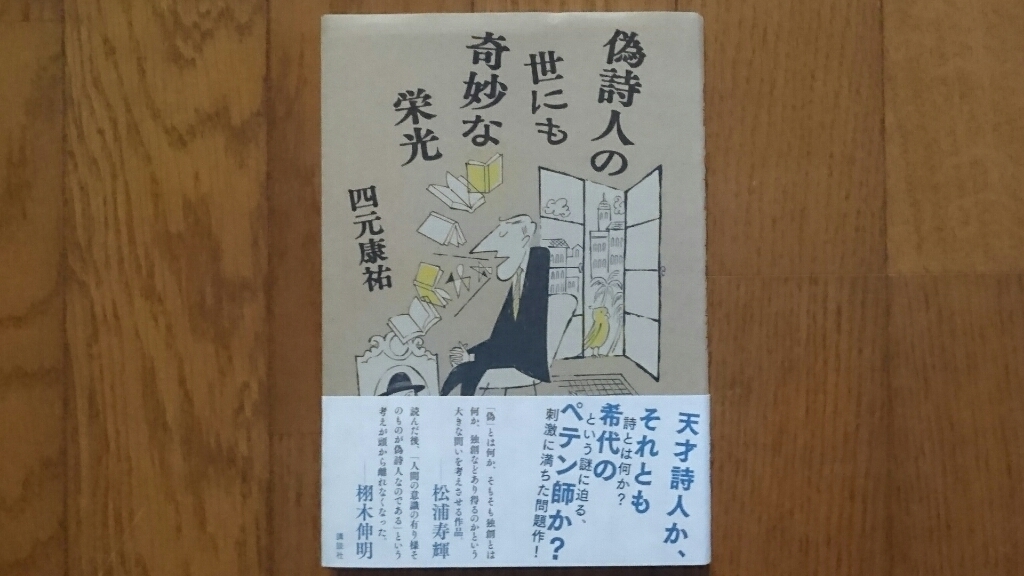 偽詩人の
世にも
奇妙な
栄光
四元康祐
天才詩人か、
それとも
希代の
ペテン師か?
詩とは何か?
という謎に迫る、
刺激に満ちた問題作!
「偽」とは何か、そもそも独創とは
何か、独創などあり得るのかという
大きな問いを考えさせる作品。
——松浦寿輝
読んだ後、「人間の意識の有り様そ
のものが偽詩人なのである」という
考えが頭から離れなくなった。
——栩木伸明
講談社